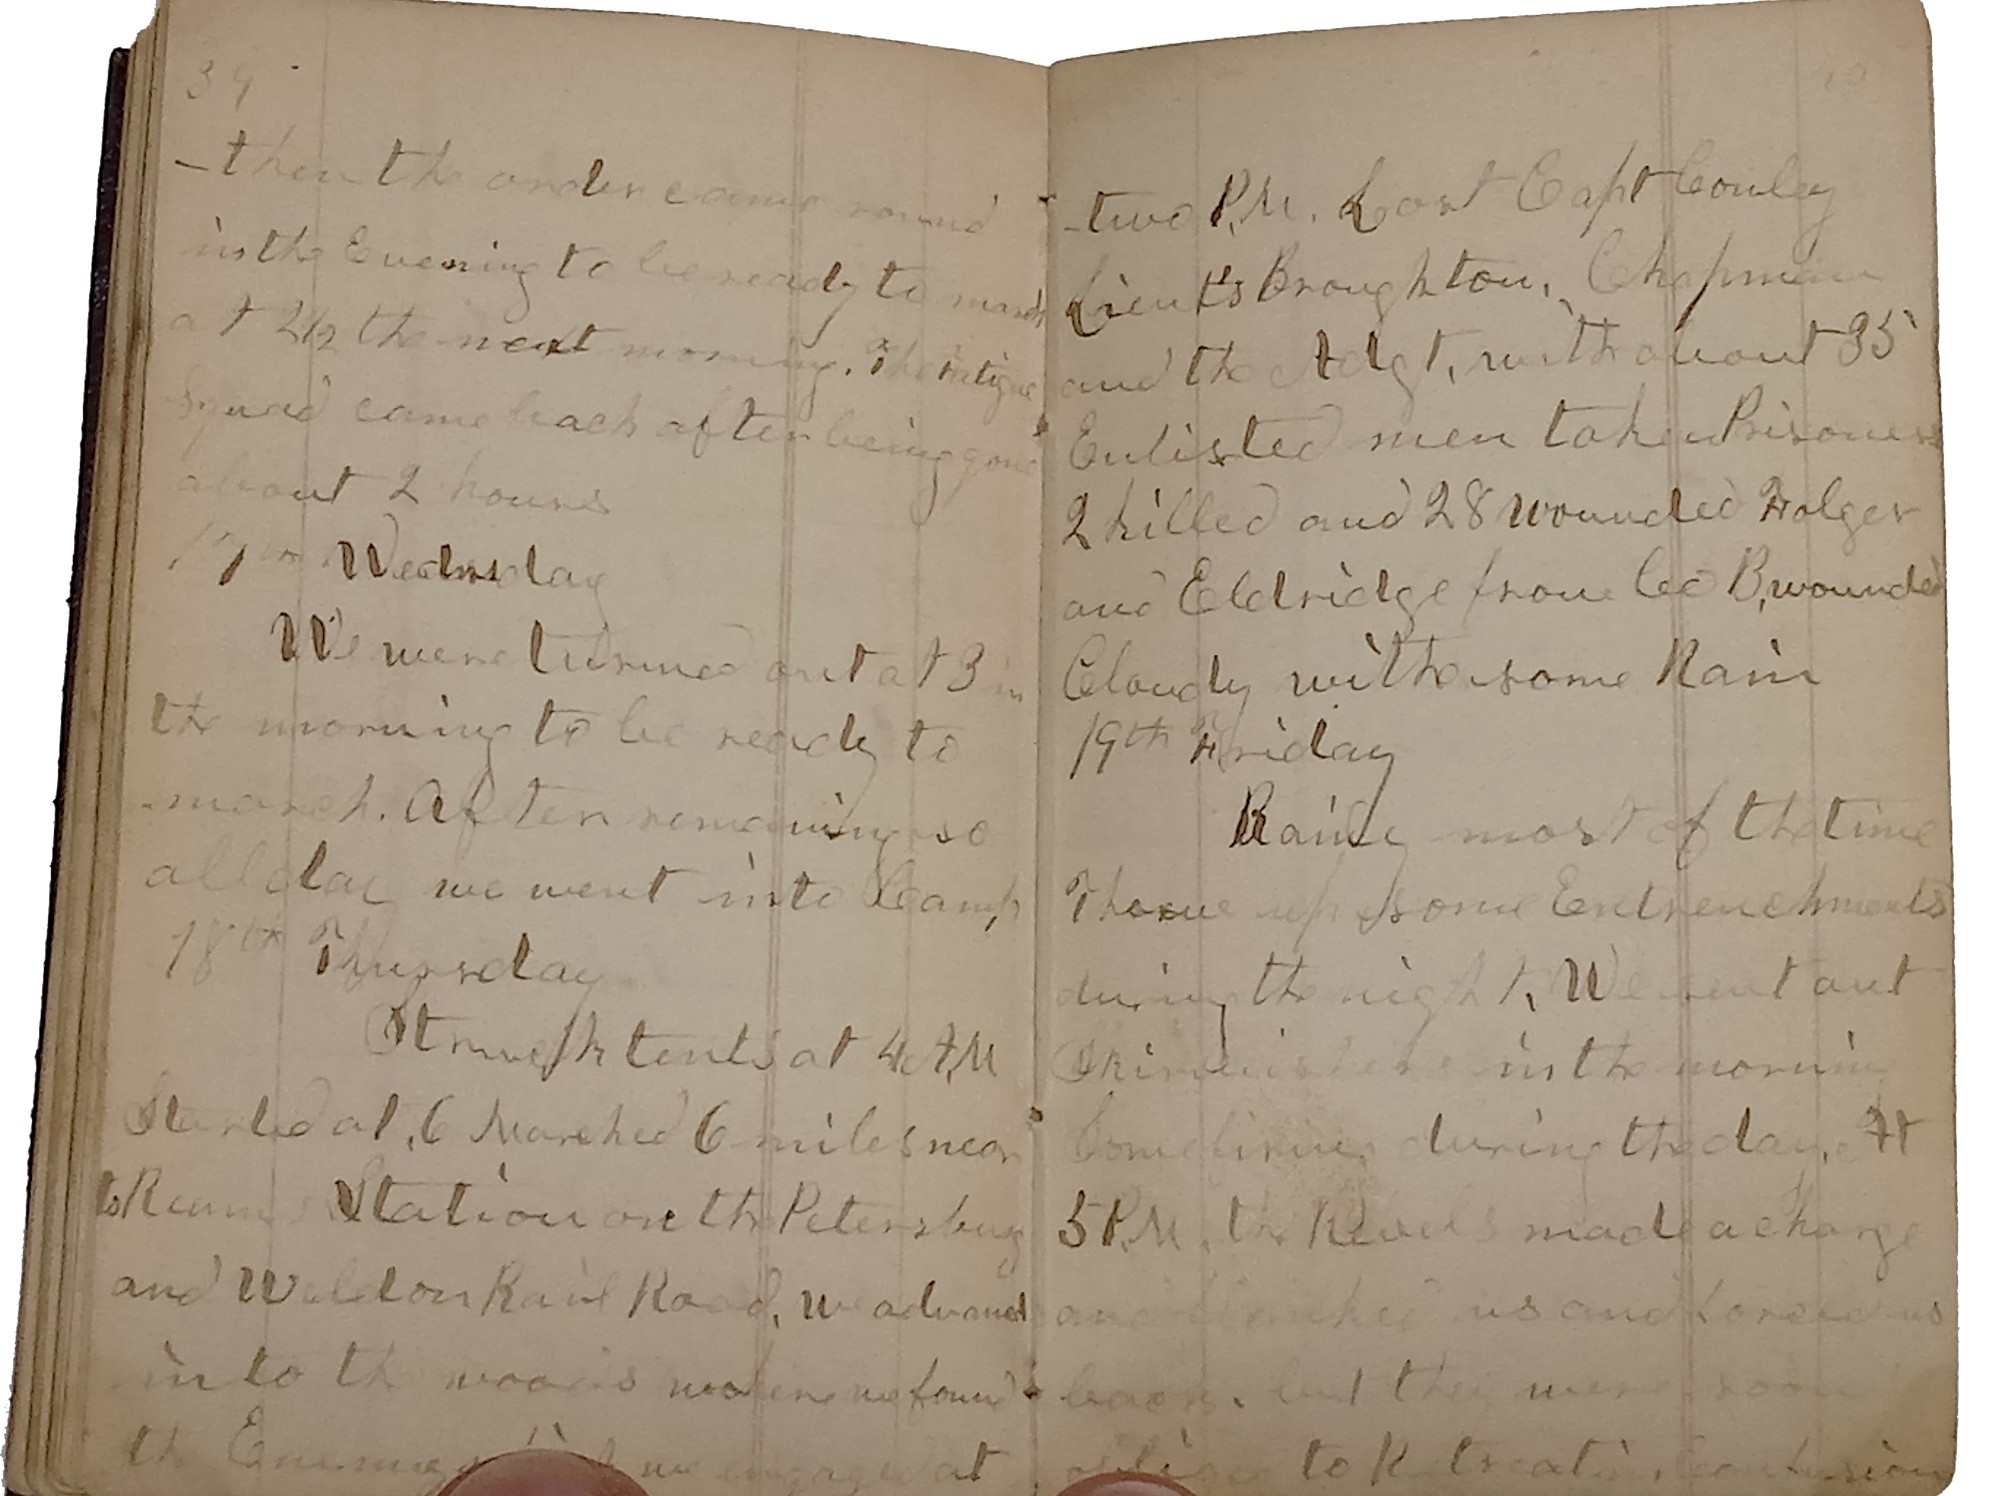 39
then the order came round
in the Evening to be ready to march
at 2½ the next morning. The Fatigue
Squad came back after being gone
about 2 hours
17th Wednsday
We were turned out at 3 in
the morning to be ready to
march. After remaining so
all day we went into Camp
18th Thursday
Struck tents at 4 A.M
Started at 6 Marched 6 miles near
to Reams Station on the Petersburg
and Weldon Rail Road, we advanced
into the woods where we found
the Enemy we engaged at
40
two P.M. Lost Capt Conley
Lieuts Broughton, Chapman
and the Adgt, with about 35
Enlisted men taken Prisoners
2 killed and 28 wounded Folger
and Eldridge from Co B, wounded
Cloudy with some Rain
19th Friday
Rainy most of the time
Throwe up some Entrenchments
during the night, We sent out
Skirmishers in the mornin
Sometimes during the day, At
5 P.M. the Rebels made a charge
and flanked us and forced us
back, but they were soon
oblige to Retreat in Confusion